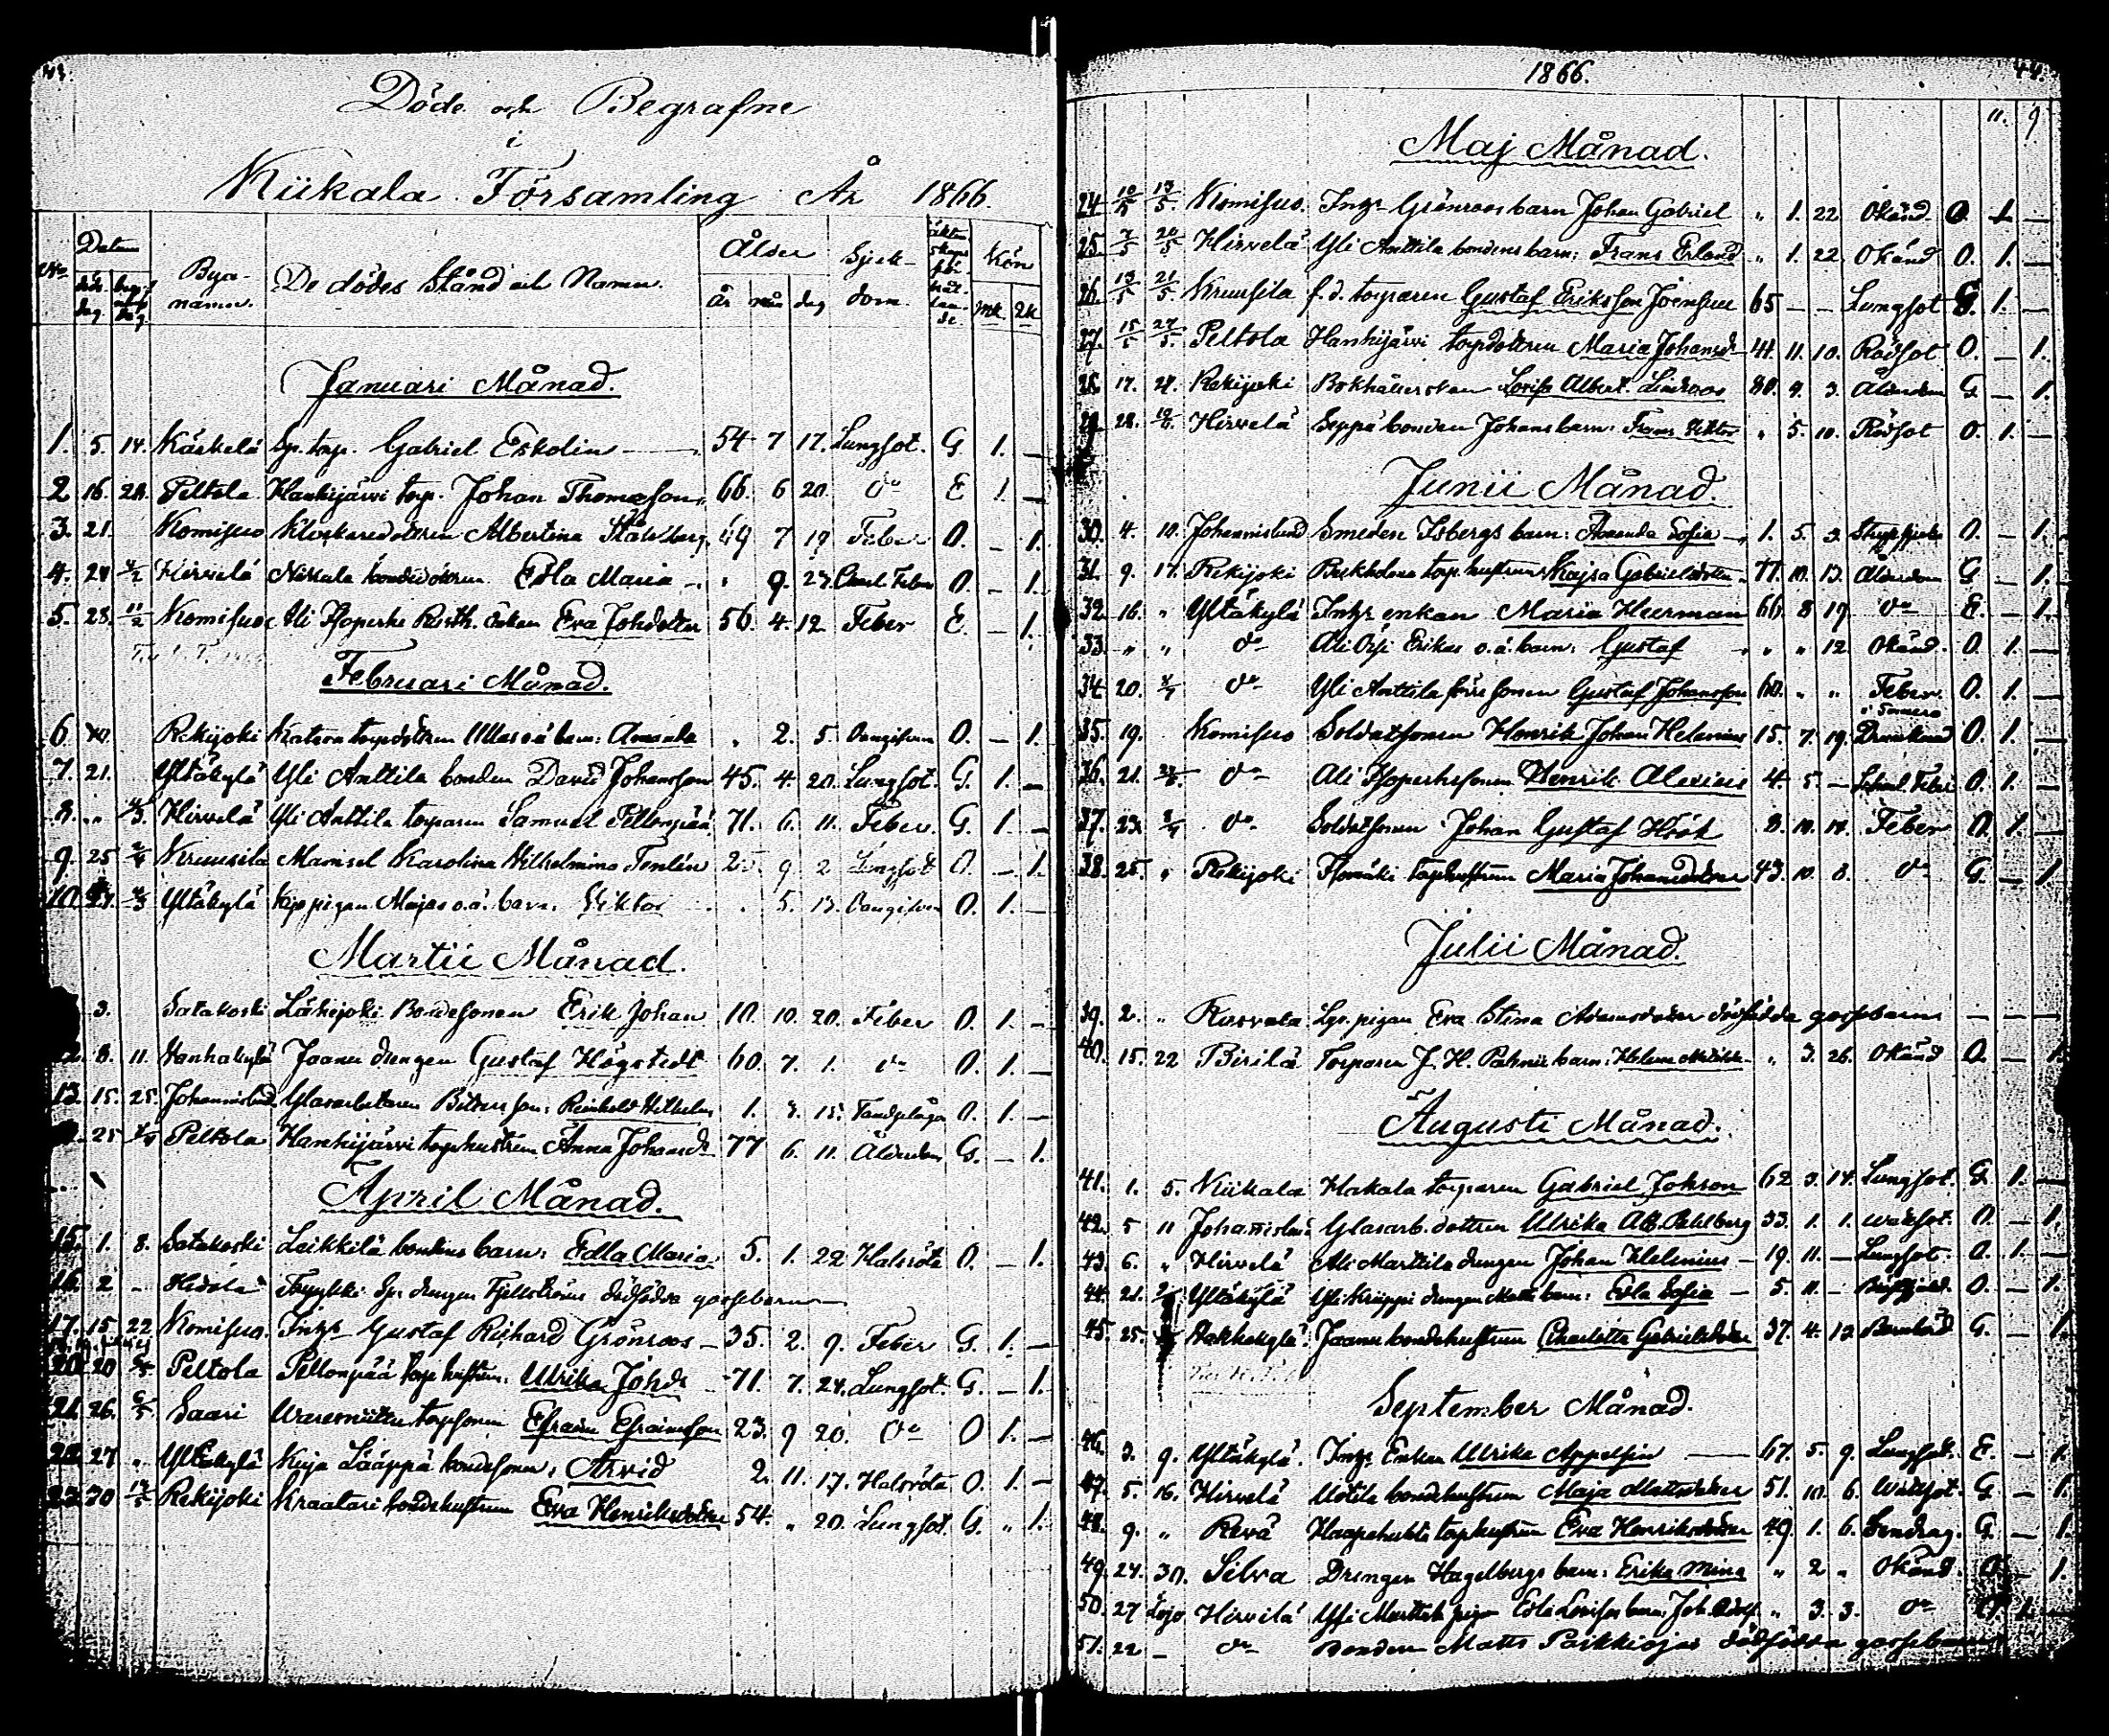 Döde och Begrafne
i
Kiikala Församling År 1866.
No Datum Bya-namn. De dödes Stånd och Namn. Ålder Sjuk-dom. Kön
år mån dag mk. qk
Januari Månad.
1. 5. 14. Käskelä torp. Gabriel Eskolin 54 7 17. Lungsot. G. 1. —
2 16. 21. Peltola Hanhijärvi torp. Johan Thomasson 66. 6 20. do E 1. —
3. 21. Komisuo Klockaredottren Albertina Stålberg 49 7 19 Feber O. — 1.
4. 24 4/2 Hirvelä Niskala bondedottren Edla Maria " 9. 23. Feber O. — 1.
5. 28. 11/2 Komisuo Ali Enkan Eva Johdotter 56. 4. 12 Feber E. — 1.
Februari Månad.
6. Rekijoki torpdottren Ullas oä barn: Amanda . 2. 5. O. — 1.
7. 21. Yltäkylä Yli Anttila bonden David Johansson 45. 4. 20. Lungsot. G. 1. —
8. " 4/3 Hirvelä Yli Anttila torparen Samuel Pellonpää 71. 6. 11. Feber. G. 1. —
9. 25 Kruusila Mamsel Karolina Wilhelmina 25 9 2 Lungsot O. — 1.
10. Yltäkylä pigan Majas o.ä. barn: Viktor . 5. 13. O. 1. —
Martii Månad.
3. Satakoski Lähijoki Bondesonen Erik Johan 10. 10. 20. Feber O. 1. —
8. 11. Hanhakylä Jaanu drengen Gustaf Högstedt 60. 7. 1. do O. 1. —
13. 15. 25. Johannislund Glasarbetaren son: Reinhold Wilhelm 1. 15. Tandplåga O. 1. —
25 Peltola Hanhijärvi torphustrun Anna Johansd. 77 6. 11. Ålderdom G. — 1.
April Månad.
15. 1. 8. Satakoski Leikkilä bondens barn: Edla Maria 5. 1. 22 Halsröta O. — 1.
16. 2 - drengen Fjellströms dödfödda gossebarn
17. 15. 22 Komisuo. Inhys Gustaf Richard Grönroos 35. 2. 9. Feber G. 1. —
20. 20 Peltola Pellonpää torp hustrun: Ulrika Johd. 71. 7. 24. Lungsot. G. — 1.
21. 26. 6/5 Saari torpsonen Efraim Efraimsson 23. 9 20. do O 1. —
22. 27 " Yltäkylä Kuja Lääppä bondesonen: Arvid 2. 11. 17. Halsröta O. 1. —
23. 30 13/5 Rekijoki Kraatari bondehustrun Eva Henriksdotter 54. " 20. Lungsot. G. " 1.
1866.
44.
Maj Månad.
24. 10/5 13/5. Komisuo. Inhys Grönroos barn Johan Gabriel " 1. 22 Okänd O. 1. —
25. 7/5 20/5 Hirvelä Yli Anttila bondens barn: Frans Erland " 1. 22. Okänd O. 1. —
26. 13/5 21/5 Kruusila f.d. torparen Gustaf Eriksson Joensuu 65 — — Lungsot G. 1. —
27. 15/5 27/5. Peltola Hanhijärvi torpdottren Maria Johansd. 41. 11. 10. Rödsot O. — 1.
28. 17. 27. Rekijoki Bokhållerskan Lovisa Albert. Lindroos 80. 9. 3. Ålderdom G — 1.
29. 28. 10/6. Hirvelä Seppä bonden Johans barn: Frans Viktor " 5. 10. Rödsot O. 1. —
Junii Månad.
30. 4. 10. Johannislund Smeden Isbergs barn: Amanda Sofia 1. 5. 3. O. — 1.
31. 9. 17. Rekijoki torp. hustrun Kajsa Gabrielsdotter 77. 10. 13. Ålderdom G — 1.
32. 16. " Yltäkylä Inhys enkan Maria Heerman 66. 8 19. do E. — 1.
33. " " do Ali Erikas o.ä. barn: Gustaf " " 12. Okänd. O. 1. —
34. 20. do Yli Anttila sonen Gustaf Johansson 60. " " Feber. O. 1. —
35. 19. Komisuo Soldatsonen Henrik Johan Helenius 15. 7. 19. i Somero Drunknad O. 1. —
36. 21. do Ali Henrik Alexius 4. 5. — Feber O. 1. —
37. 23. do Soldatsonen Johan Gustaf Höök 8. 10. 14. Feber O. 1. —
38. 25. " Rekijoki torphustrun Maria Johansdotter 43. 10. 8. do G. — 1
Julii Månad.
39. 2. " Kurvala pigan Eva Stina Adamsdotter dödfödda gossebarn — — —
40. 15. 22 Pirilä Torparen J. H. barn: Helena " 3. 26. Okänd O. — 1.
Augusti Månad.
41. 1. 5. Kiikala Hakala torparen Gabriel Johsson 62. 3. 14. Lungsot. G. 1. —
42. 5 11 Johannislund Glasarb. dottren Ulrika Alb. Pahlberg 33. 1. 1. Wattsot. O. — 1.
43. 6. " Hirvelä Ali Marttila drengen Johan Helenius — 19. 11. — Lungsot. O. 1. —
44. 21. Yltäkylä Yli Knappi drengen Matts barn: Edla Sofia — 5. 11. — O. — 1.
45. 25. Hakkakylä Jaanu bondehustrun Charlotta Gabrielsdotter 37. 4. 12. Barnbörd G. — 1.
September Månad.
46. 3. 9. Yltäkylä. Inhys Enkan Ulrika Appelsin 67. 5. 9. Lungsot. E. — 1.
47. 5. 16. Hirvelä Uotila bondehustrun Maja Mattsdotter 51. 10. 6. Wattsot. G. — 1.
48. 9. " Rekä Haapahuhta torphustrun Eva Henriksdotter 49. 1. 6. G. — 1.
49. 24. 30. Silva Drengen Hagelbergs barn: Erika Mina " 2 " Okänd. O — 1.
50. 27 Lojo Hirvelä Yli Marttila piga Edla Lovisas barn: Joh. Adolf " 3. 3. do O 1. —
51. 22 — do Bonden Matts Paikkiojas dödfödda gossebarn